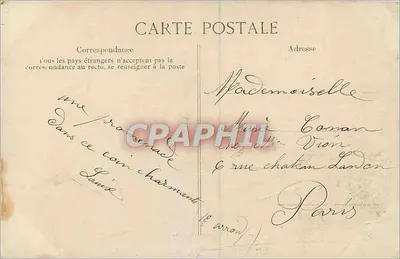 CARTE POSTALE
Correspondance
Tous les pays étrangers n'acceptent pas la
correspondance au recto, se renseigner à la poste
Adresse
une promenade
Dans ce coin charmant
Mademoiselle
Conan
Vion
6 rue chateau Landon
Paris
CPAPHIL